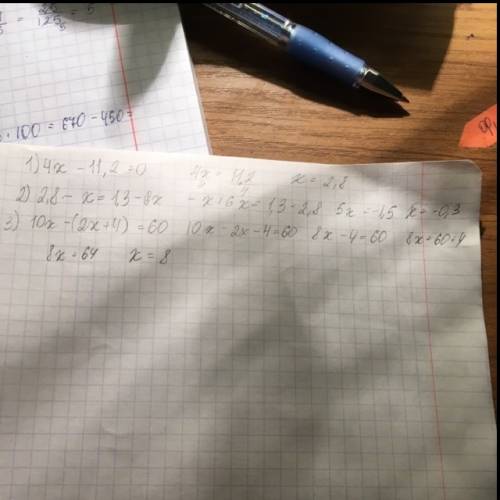 = 25/125 = 5
· 100 = 670 - 450 =
1) 4x - 11,2 = 0 4x = 11,2 x = 2,8
2) 2,8 - x = 1,3 - 6x - x + 6x = 1,3 - 2,8 5x = -1,5 x = -0,3
3) 10x - (2x + 4) = 60 10x - 2x - 4 = 60 8x - 4 = 60 8x = 60 + 4
8x = 64 x = 8